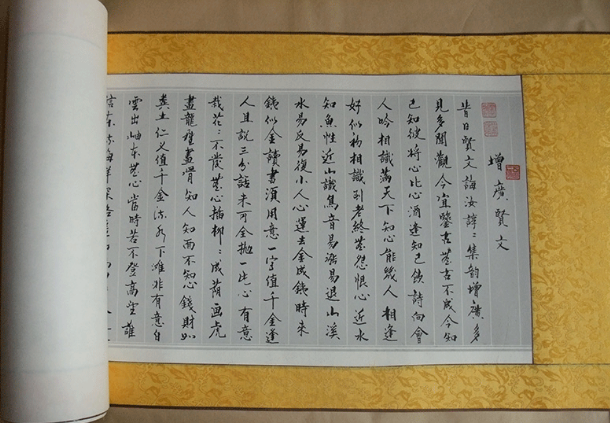 增廣賢文
昔日賢文誨汝諄:集韵增廣多
見多聞觀今宜鑒古無古不成今知
己知彼將心比心酒逢知己飲詩向會
人吟相識滿天下知心能幾人相逢
好似初相識到老終無怨恨心近水
知魚性近山識鳥音易漲易退山溪
水易反易復小人心運去金成鐵時來
鐵似金讀書須用意一字值千金逢
人且說三分話未可全拋一片心有意
栽花:不發無心插柳:成蔭画虎
畫龍難畫骨知人知面不知心錢財如
糞土仁义值千金流水下灘非有意白
雲出岫本無心當時若不登高望誰
海洋深